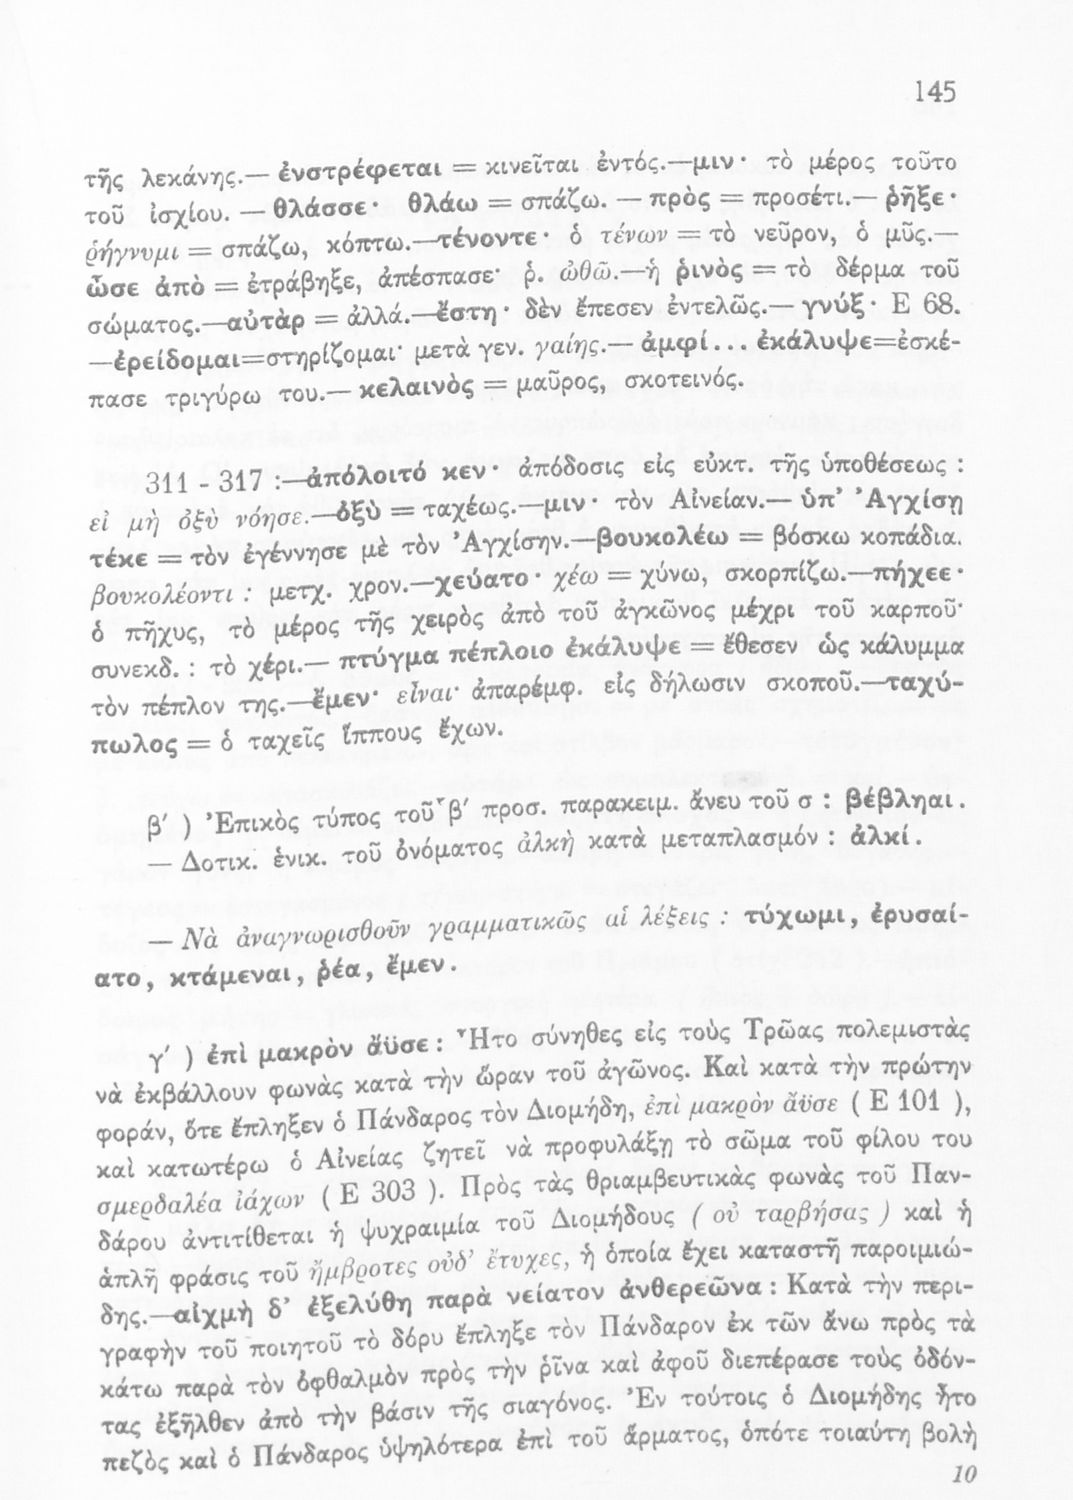 145
τῆς λεκάνης.— ἐνστρέφεται = κινεῖται ἐντός.—μιν· τὸ μέρος τοῦτο
τοῦ ἰσχίου. — θλάσσε· θλάω = σπάζω. — πρὸς = προσέτι.— ῥῆξε·
ῥήγνυμι = σπάζω, κόπτω.—τένοντε· ὁ τένων = τὸ νεῦρον, ὁ μῦς.—
ὦσε ἀπὸ = ἐτράβηξε, ἀπέσπασε· ῥ. ὠθῶ.—ἡ ῥινὸς = τὸ δέρμα τοῦ
σώματος.—αὐτὰρ = ἀλλά.—ἔστη· δὲν ἔπεσεν ἐντελῶς.— γνύξ· Ε 68.
—ἐρείδομαι=στηρίζομαι· μετὰ γεν. γαίης.— ἀμφί... ἐκάλυψε=ἐσκέ-
πασε τριγύρω του.— κελαινὸς = μαῦρος, σκοτεινός.
311 - 317 :—ἀπόλοιτό κεν· ἀπόδοσις εἰς εὐκτ. τῆς ὑποθέσεως :
εἰ μὴ ὀξὺ νόησε.—ὀξὺ = ταχέως.—μιν· τὸν Αἰνείαν.— ὑπ' Ἀγχίσῃ
τέκε = τὸν ἐγέννησε μὲ τὸν Ἀγχίσην.—βουκολέω = βόσκω κοπάδια.
βουκολέοντι : μετχ. χρον.—χεύατο· χέω = χύνω, σκορπίζω.—πήχεε·
ὁ πῆχυς, τὸ μέρος τῆς χειρὸς ἀπὸ τοῦ ἀγκῶνος μέχρι τοῦ καρποῦ·
συνεκδ. : τὸ χέρι.— πτύγμα πέπλοιο ἐκάλυψε = ἔθεσεν ὡς κάλυμμα
τὸν πέπλον της.—ἔμεν· εἶναι· ἀπαρέμφ. εἰς δήλωσιν σκοποῦ.—ταχύ-
πωλος = ὁ ταχεῖς ἵππους ἔχων.
β' ) Ἐπικὸς τύπος τοῦ β' προσ. παρακειμ. ἄνευ τοῦ σ : βέβληαι.
— Δοτικ. ἑνικ. τοῦ ὀνόματος ἀλκὴ κατὰ μεταπλασμόν : ἀλκί.
— Νὰ ἀναγνωρισθοῦν γραμματικῶς αἱ λέξεις : τύχωμι, ἐρυσαί-
ατο, κτάμεναι, ῥέα, ἔμεν.
γ' ) ἐπὶ μακρὸν ἄϋσε : Ἦτο σύνηθες εἰς τοὺς Τρῶας πολεμιστὰς
νὰ ἐκβάλλουν φωνὰς κατὰ τὴν ὥραν τοῦ ἀγῶνος. Καὶ κατὰ τὴν πρώτην
φοράν, ὅτε ἔπληξεν ὁ Πάνδαρος τὸν Διομήδη, ἐπὶ μακρὸν ἄϋσε ( Ε 101 ),
καὶ κατωτέρω ὁ Αἰνείας ζητεῖ νὰ προφυλάξῃ τὸ σῶμα τοῦ φίλου του
σμερδαλέα ἰάχων ( Ε 303 ). Πρὸς τὰς θριαμβευτικὰς φωνὰς τοῦ Παν-
δάρου ἀντιτίθεται ἡ ψυχραιμία τοῦ Διομήδους ( οὐ ταρβήσας ) καὶ ἡ
ἁπλῆ φράσις τοῦ ἤμβροτες οὐδ' ἔτυχες, ἡ ὁποία ἔχει καταστῆ παροιμιώ-
δης.—αἰχμὴ δ' ἐξελύθη παρὰ νείατον ἀνθερεῶνα : Κατὰ τὴν περι-
γραφὴν τοῦ ποιητοῦ τὸ δόρυ ἔπληξε τὸν Πάνδαρον ἐκ τῶν ἄνω πρὸς τὰ
κάτω παρὰ τὸν ὀφθαλμὸν πρὸς τὴν ῥῖνα καὶ ἀφοῦ διεπέρασε τοὺς ὀδόν-
τας ἐξῆλθεν ἀπὸ τὴν βάσιν τῆς σιαγόνος. Ἐν τούτοις ὁ Διομήδης ἦτο
πεζὸς καὶ ὁ Πάνδαρος ὑψηλότερα ἐπὶ τοῦ ἅρματος, ὁπότε τοιαύτη βολὴ
10